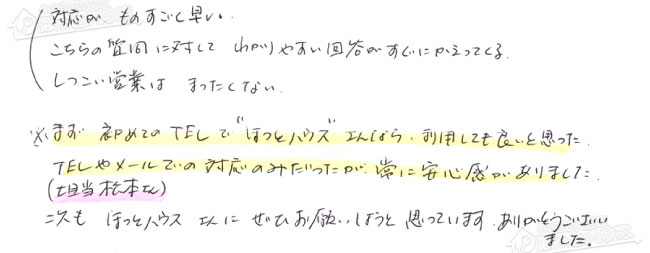 対応が、ものすごく早い。
こちらの質問に対して わかりやすい回答がすぐにかえってくる。
しつこい営業は まったくでない。
※まず 初めてのTELで“ほっとハウス”さんなら、利用しても良いと思った。
TELやメールでの対応のみだったが、常に安心感がありました。
(担当 松本さん)
次も ほっとハウスさんに ぜひお願いしようと思っています。ありがとうござい
ました。